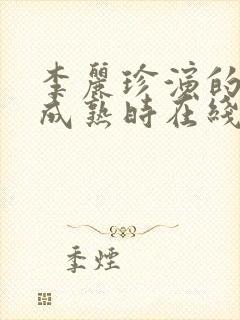 李麗珍演的
成熟時在綫
季煙